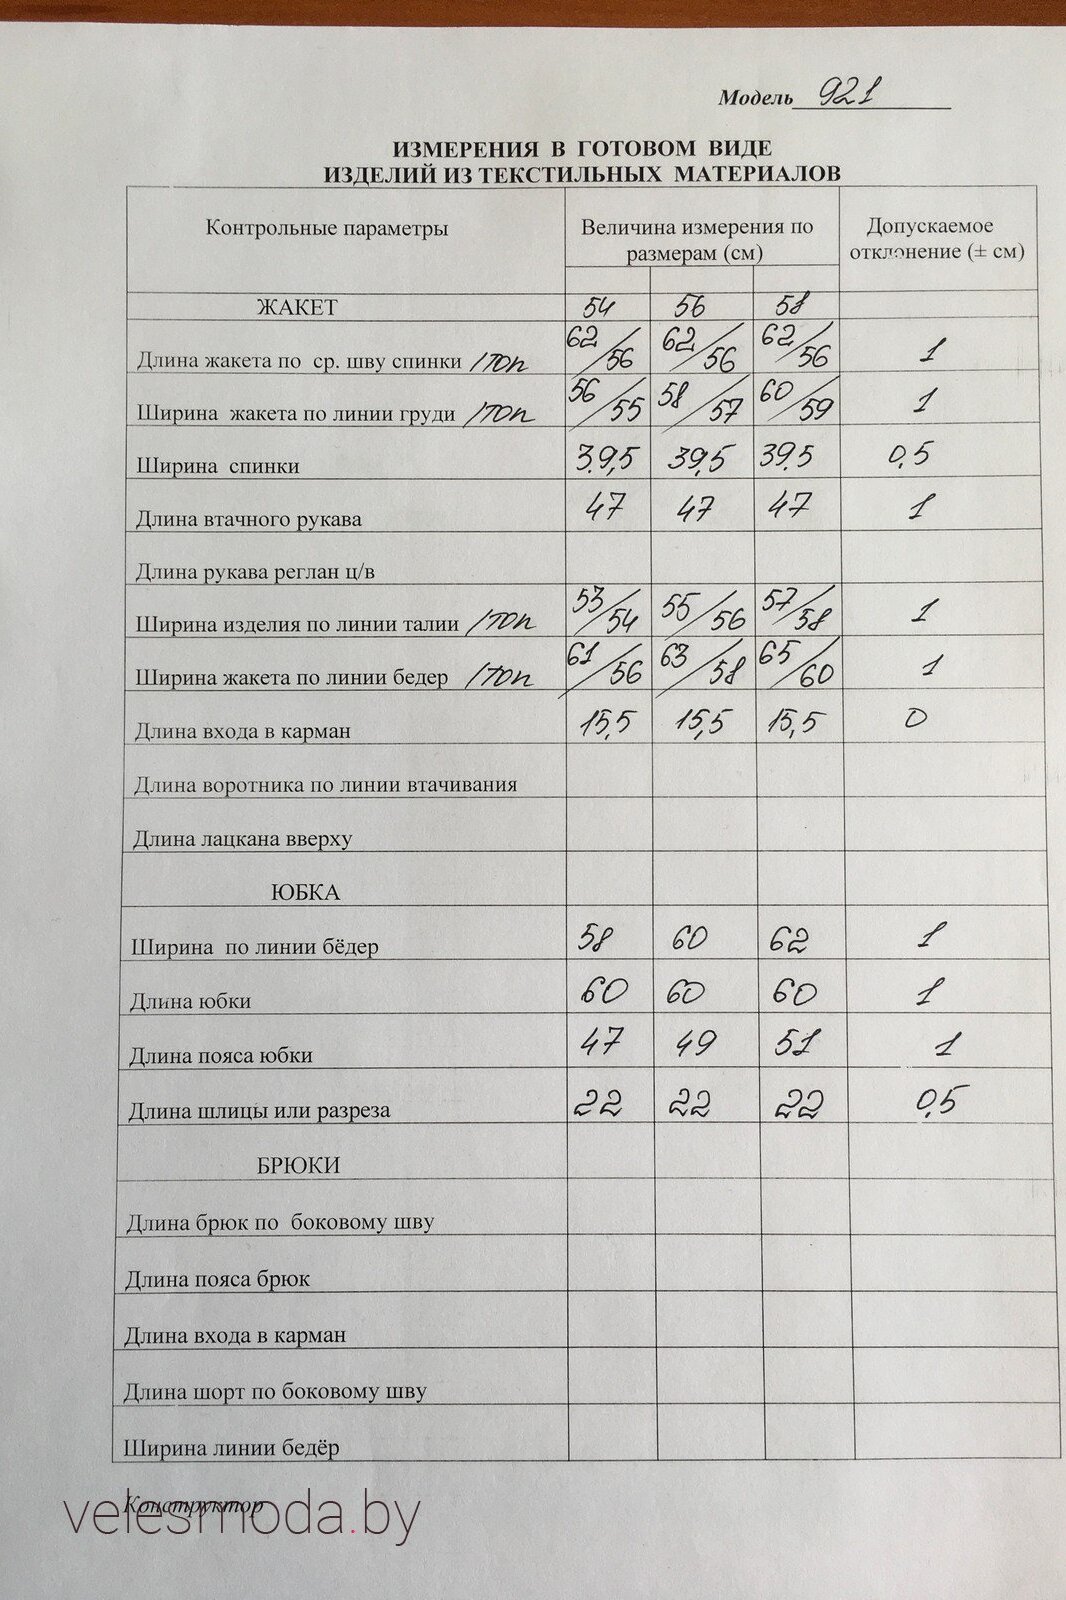 Модель 921
ИЗМЕРЕНИЯ В ГОТОВОМ ВИДЕ
ИЗДЕЛИЙ ИЗ ТЕКСТИЛЬНЫХ МАТЕРИАЛОВ
Контрольные параметры Величина измерения по размерам (см) Допускаемое отклонение (± см)
ЖАКЕТ 54 56 58
Длина жакета по ср. шву спинки /топ 62/56 62/56 62/56 1
Ширина жакета по линии груди /топ 56/55 58/57 60/59 1
Ширина спинки 39,5 39,5 39,5 0,5
Длина втачного рукава 47 47 47 1
Длина рукава реглан ц/в
Ширина изделия по линии талии /топ 53/54 55/56 57/58 1
Ширина жакета по линии бедер /топ 61/56 63/58 65/60 1
Длина входа в карман 15,5 15,5 15,5 0
Длина воротника по линии втачивания
Длина лацкана вверху
ЮБКА
Ширина по линии бёдер 58 60 62 1
Длина юбки 60 60 60 1
Длина пояса юбки 47 49 51 1
Длина шлицы или разреза 22 22 22 0,5
БРЮКИ
Длина брюк по боковому шву
Длина пояса брюк
Длина входа в карман
Длина шорт по боковому шву
Ширина линии бедёр
Конструктор
velesmoda.by